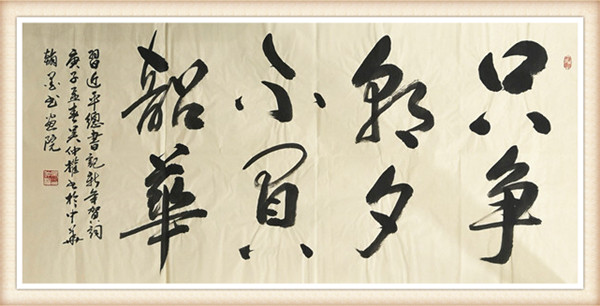 只争
朝夕
不負
韶華
習近平總書記新年賀詞
庚子孟春吴仲權书於中華
翰墨书画院